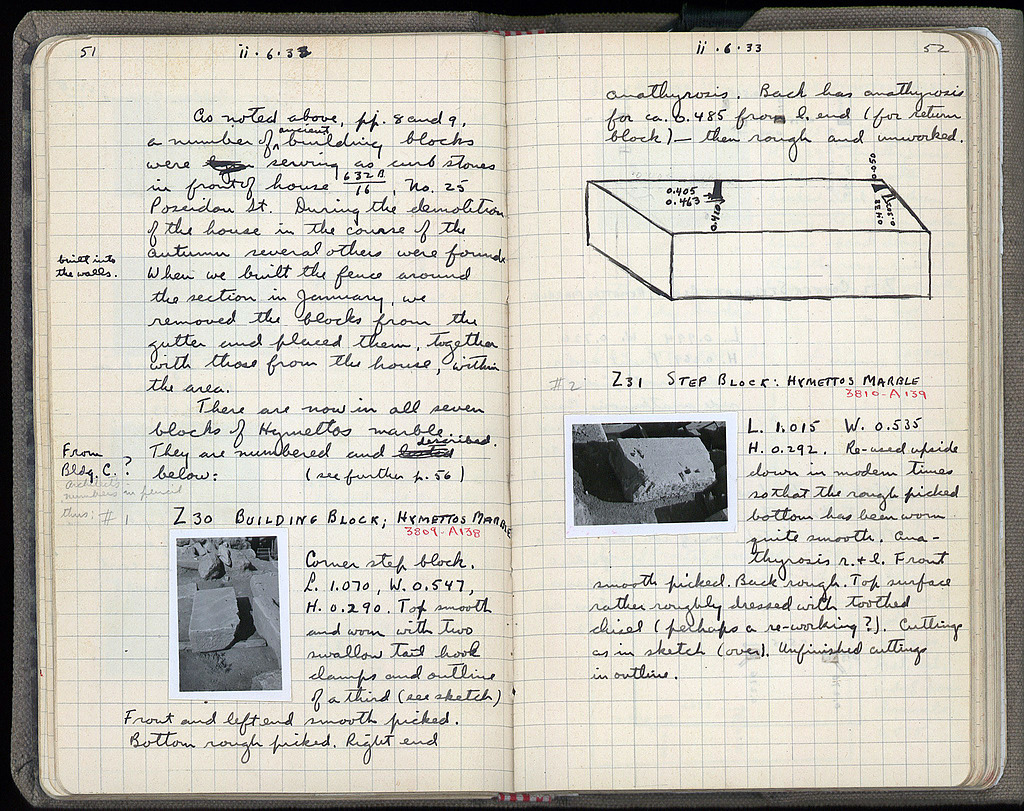 51
ii · 6 · 33
As noted above, pp. 8 and 9,
a number of ancient building blocks
were serving as curb stones
in front of house 632B/16, No. 25
Poseidon St. During the demolition
of the house in the course of the
autumn several others were found
built into
the walls.
When we built the fence around
the section in January, we
removed the blocks from the
gutter and placed them, together
with those from the house, within
the area.
There are now in all seven
blocks of Hymettos marble.
They are numbered and described
below: (see further p. 56)
From
Bldg. C. ?
architects'
numbers in pencil
thus: #1
Z 30 BUILDING BLOCK; HYMETTOS MARBLE
3809-A138
Corner step block.
L. 1.070, W. 0.547,
H. 0.290. Top smooth
and worn with two
swallow tail hook
clamps and outline
of a third (see sketch)
Front and left end smooth picked.
Bottom rough picked. Right end
ii · 6 · 33
52
anathyrosis. Back has anathyrosis
for ca. 0.485 from l. end (for return
block) – then rough and unworked.
0.405
0.463
0.420
0.050
0.438
0.302
#2
Z31 STEP BLOCK: HYMETTOS MARBLE
3810-A139
L. 1.015 W. 0.535
H. 0.292. Re-used upside
down in modern times
so that the rough picked
bottom has been worn
quite smooth. Ana-
thyrosis r. + l. Front
smooth picked. Back rough. Top surface
rather roughly dressed with toothed
chisel (perhaps a re-working?). Cuttings
as in sketch (over). Unfinished cuttings
in outline.